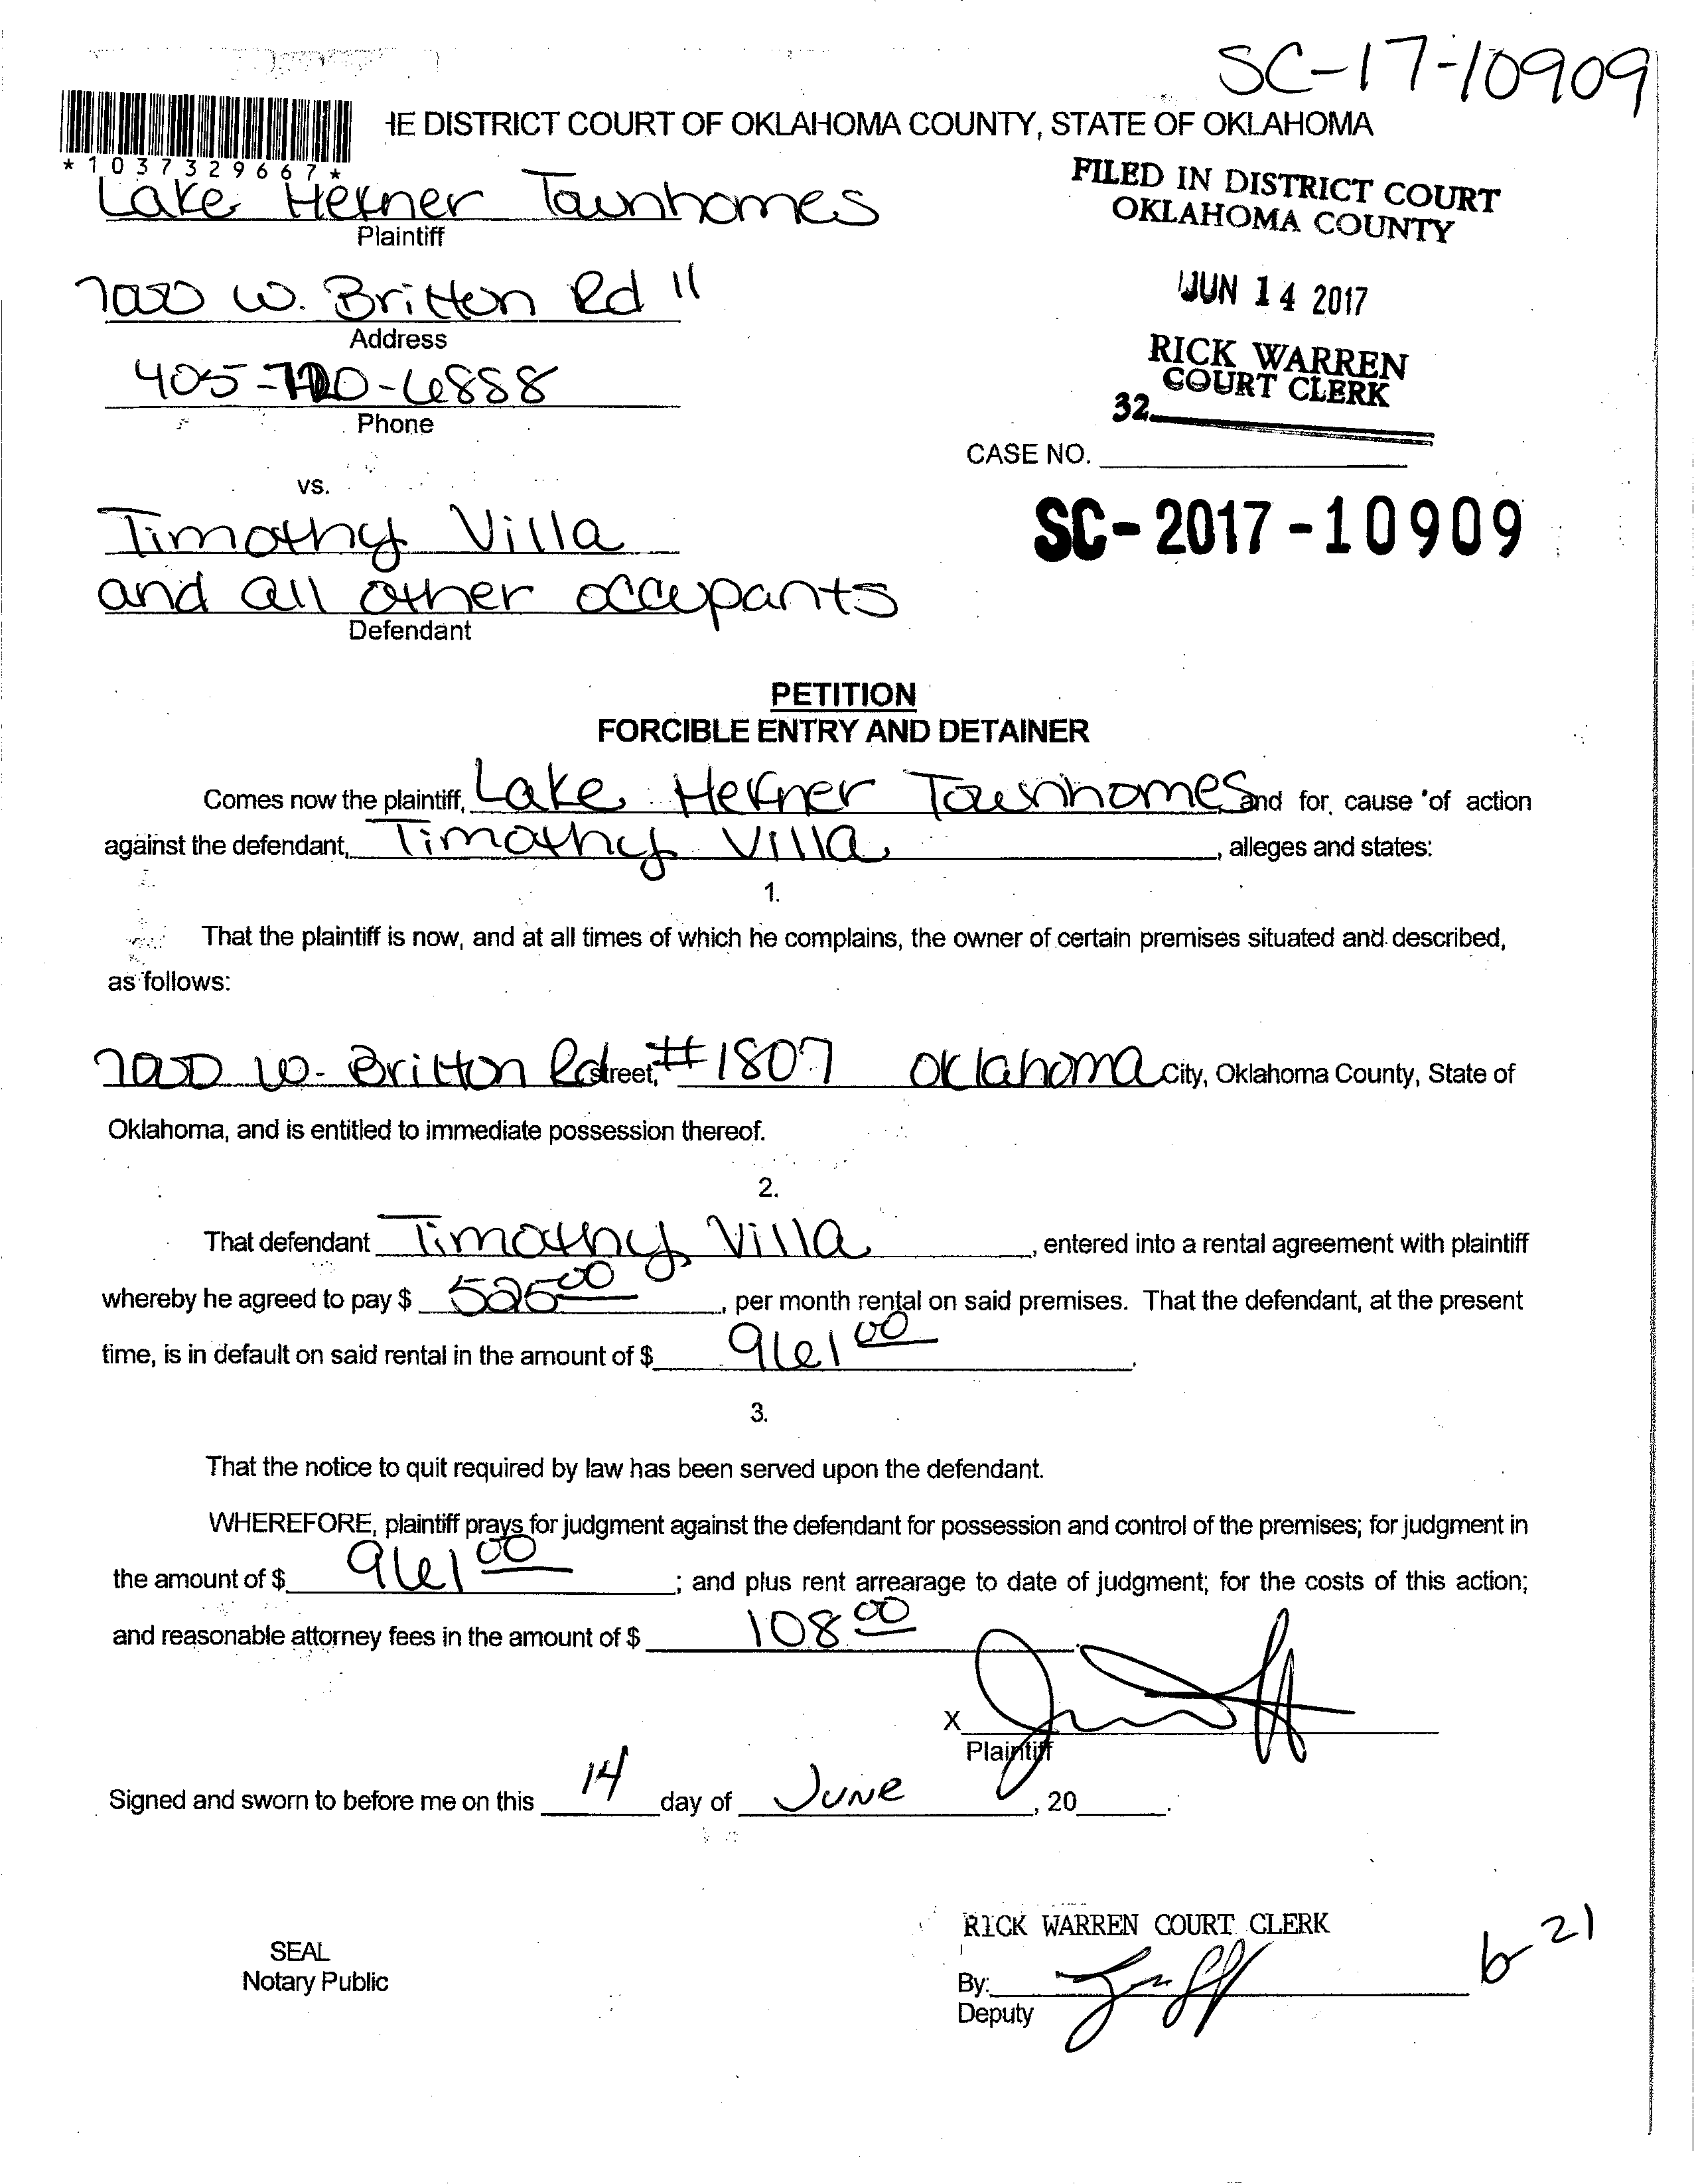 SC-17-10909
HE DISTRICT COURT OF OKLAHOMA COUNTY, STATE OF OKLAHOMA
*1037329667*
Lake Hefner Townhomes
Plaintiff
FILED IN DISTRICT COURT
OKLAHOMA COUNTY
JUN 14 2017
RICK WARREN
COURT CLERK
32
W. Britton Rd
Address
405-720-6888
Phone
CASE NO.
vs.
SC-2017-10909
Timothy Villa
and all other occupants
Defendant
PETITION
FORCIBLE ENTRY AND DETAINER
Comes now the plaintiff, Lake Hefner Townhomes and for cause of action
against the defendant, Timothy Villa, alleges and states:
1.
That the plaintiff is now, and at all times of which he complains, the owner of certain premises situated and described,
as follows:
W. Britton Rd street, #1807 Oklahoma City, Oklahoma County, State of
Oklahoma, and is entitled to immediate possession thereof.
2.
That defendant Timothy Villa, entered into a rental agreement with plaintiff
whereby he agreed to pay $ 525 00, per month rental on said premises. That the defendant, at the present
time, is in default on said rental in the amount of $ 961 00.
3.
That the notice to quit required by law has been served upon the defendant.
WHEREFORE, plaintiff prays for judgment against the defendant for possession and control of the premises; for judgment in
the amount of $ 961 00; and plus rent arrearage to date of judgment; for the costs of this action;
and reasonable attorney fees in the amount of $ 108 00
X
Plaintiff
Signed and sworn to before me on this 14 day of June, 20 .
RICK WARREN COURT CLERK
6-21
SEAL
Notary Public
By:
Deputy